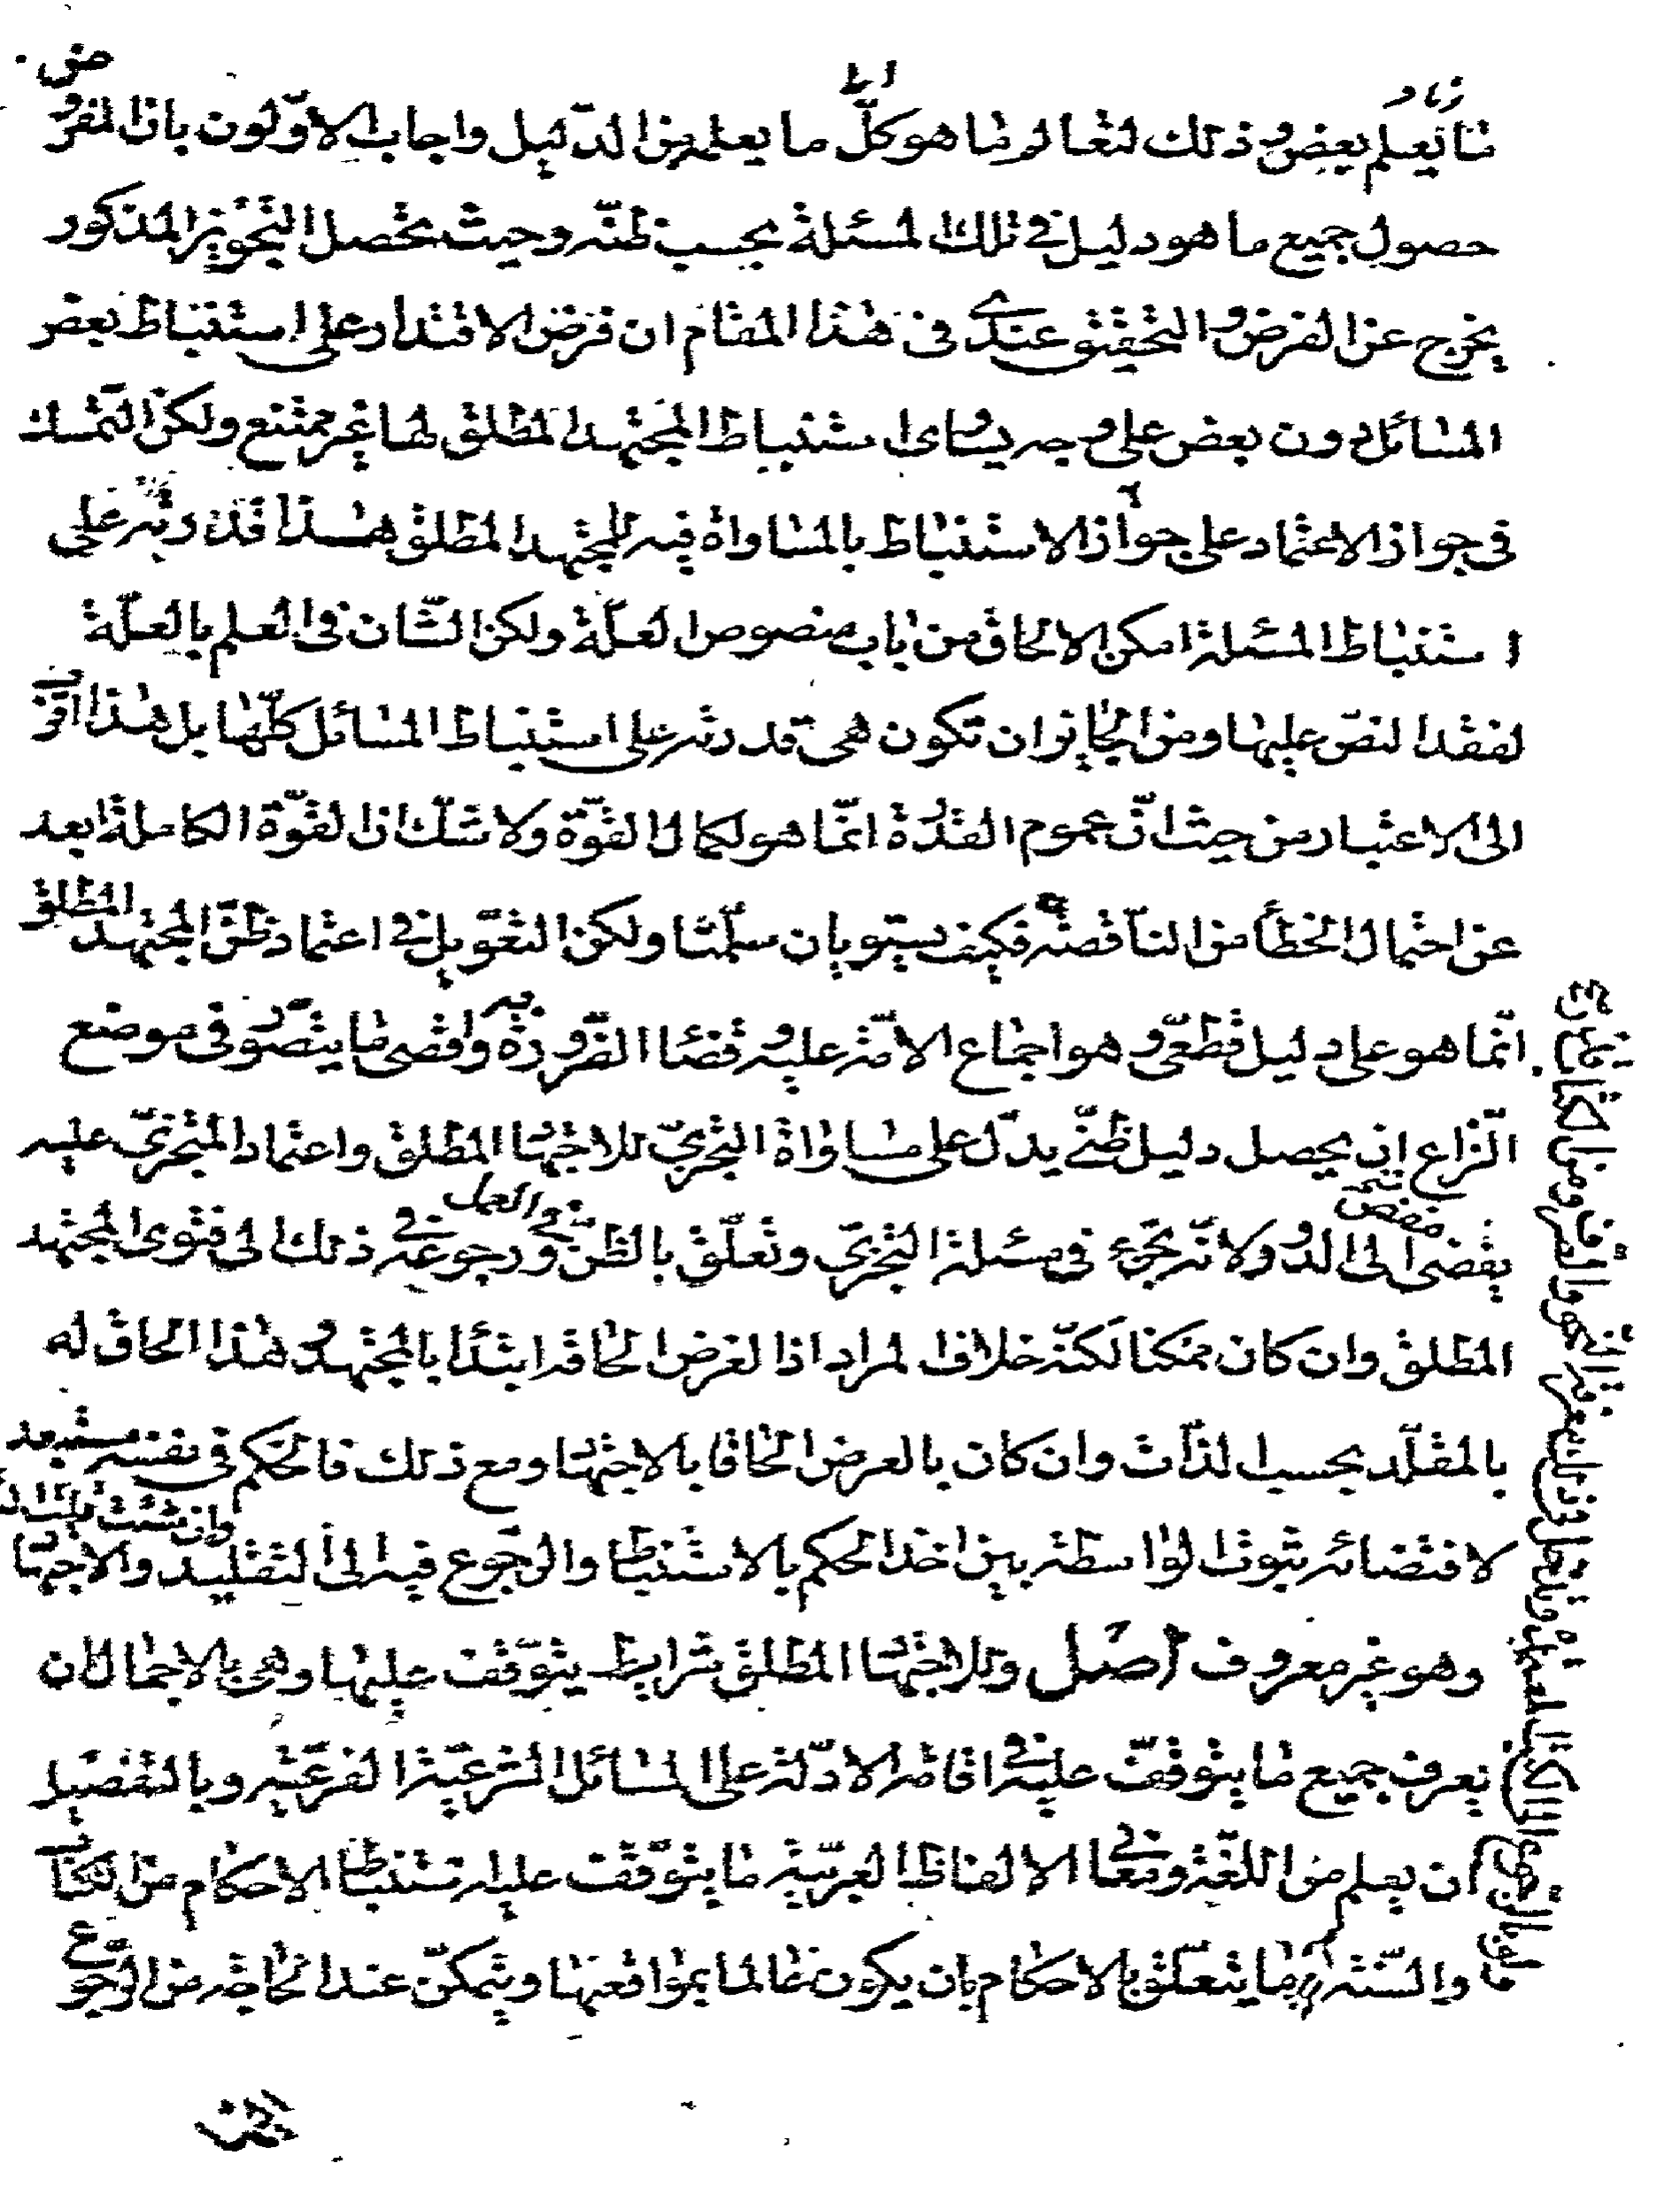 ما يعلم بعض وذلك لتعا لم ما هو كلّ ما يعلم من الدّليل واجاب الاوّلون بان المفروض
حصول جميع ما هو دليل فى تلك المسئلة بحسب ظنّه وحيث يحصل التجويز المذكور
يخرج عن الفرض والتحقيق عندى فى هذا المقام ان فرض الاقتدار على استنباط بعض
المسائل دون بعض على وجه يساوى استنباط المجتهد المطلق لها غير ممتنع ولكن التمسك
فى جواز الاعتماد على جواز الاستنباط بالمساواة فيه للمجتهد المطلق هذا قدرته على
استنباط المسئلة امكن الالحاق من باب منصوص العلّة ولكن الشّان فى العلم بالعلّة
لفقد النصّ عليها ومن الجايز ان تكون هى قدرته على استنباط المسائل كلّها بل هذا اقرب
الى الاعتبار من حيث انّ عموم القدرة انّما هو لكمال القوّة ولا شكّ ان القوّة الكاملة ابعد
عن احتمال الخطأ من النّاقصة فكيف يستويان سلّمنا ولكن التعويل فى اعتماد ظنّ المجتهد المطلق
انّما هو على دليل قطعىّ وهو اجماع الامّة عليه وقضاء الضّرورة به واقصى ما يتصوّر فى موضع
النّزاع ان يحصل دليل ظنّى يدلّ على مساواة التجزّى للاجتهاد المطلق واعتماد المتجزّى عليه
يفضى الى الدور لانّه تجزّء فى مسئلة التجزّى وتعلّق بالظنّ فى العمل ورجوعه فى ذلك الى فتوى المجتهد
المطلق وان كان ممكنا لكنّه خلاف المراد اذ الغرض الحاقه ابتداء بالمجتهد وهذا الحاق له
بالمقلّد بحسب الذّات وان كان بالعرض الحاقا بالاجتهاد ومع ذلك فالحكم فى نفسه مستبعد
لاقتضائه ثبوت الواسطة بين اخذ الحكم بالاستنباط والرّجوع فيه الى التقليد وان شئت قلت والاجتهاد
وهو غير معروف اصل وللاجتهاد المطلق شرايط يتوقّف عليها وهى بالاجمال ان
يعرف جميع ما يتوقّف عليه فى اقامة الادلّة على المسائل الشرعيّة الفرعيّة وبالتفصيل
ان يعلم من اللّغة ومعانى الالفاظ العربيّة ما يتوقّف عليه استنباط الاحكام من الكتاب
والسّنّة ما يتعلّق بالاحكام بان يكون عالما بمواقعها ويتمكّن عند الحاجة من الرّجوع